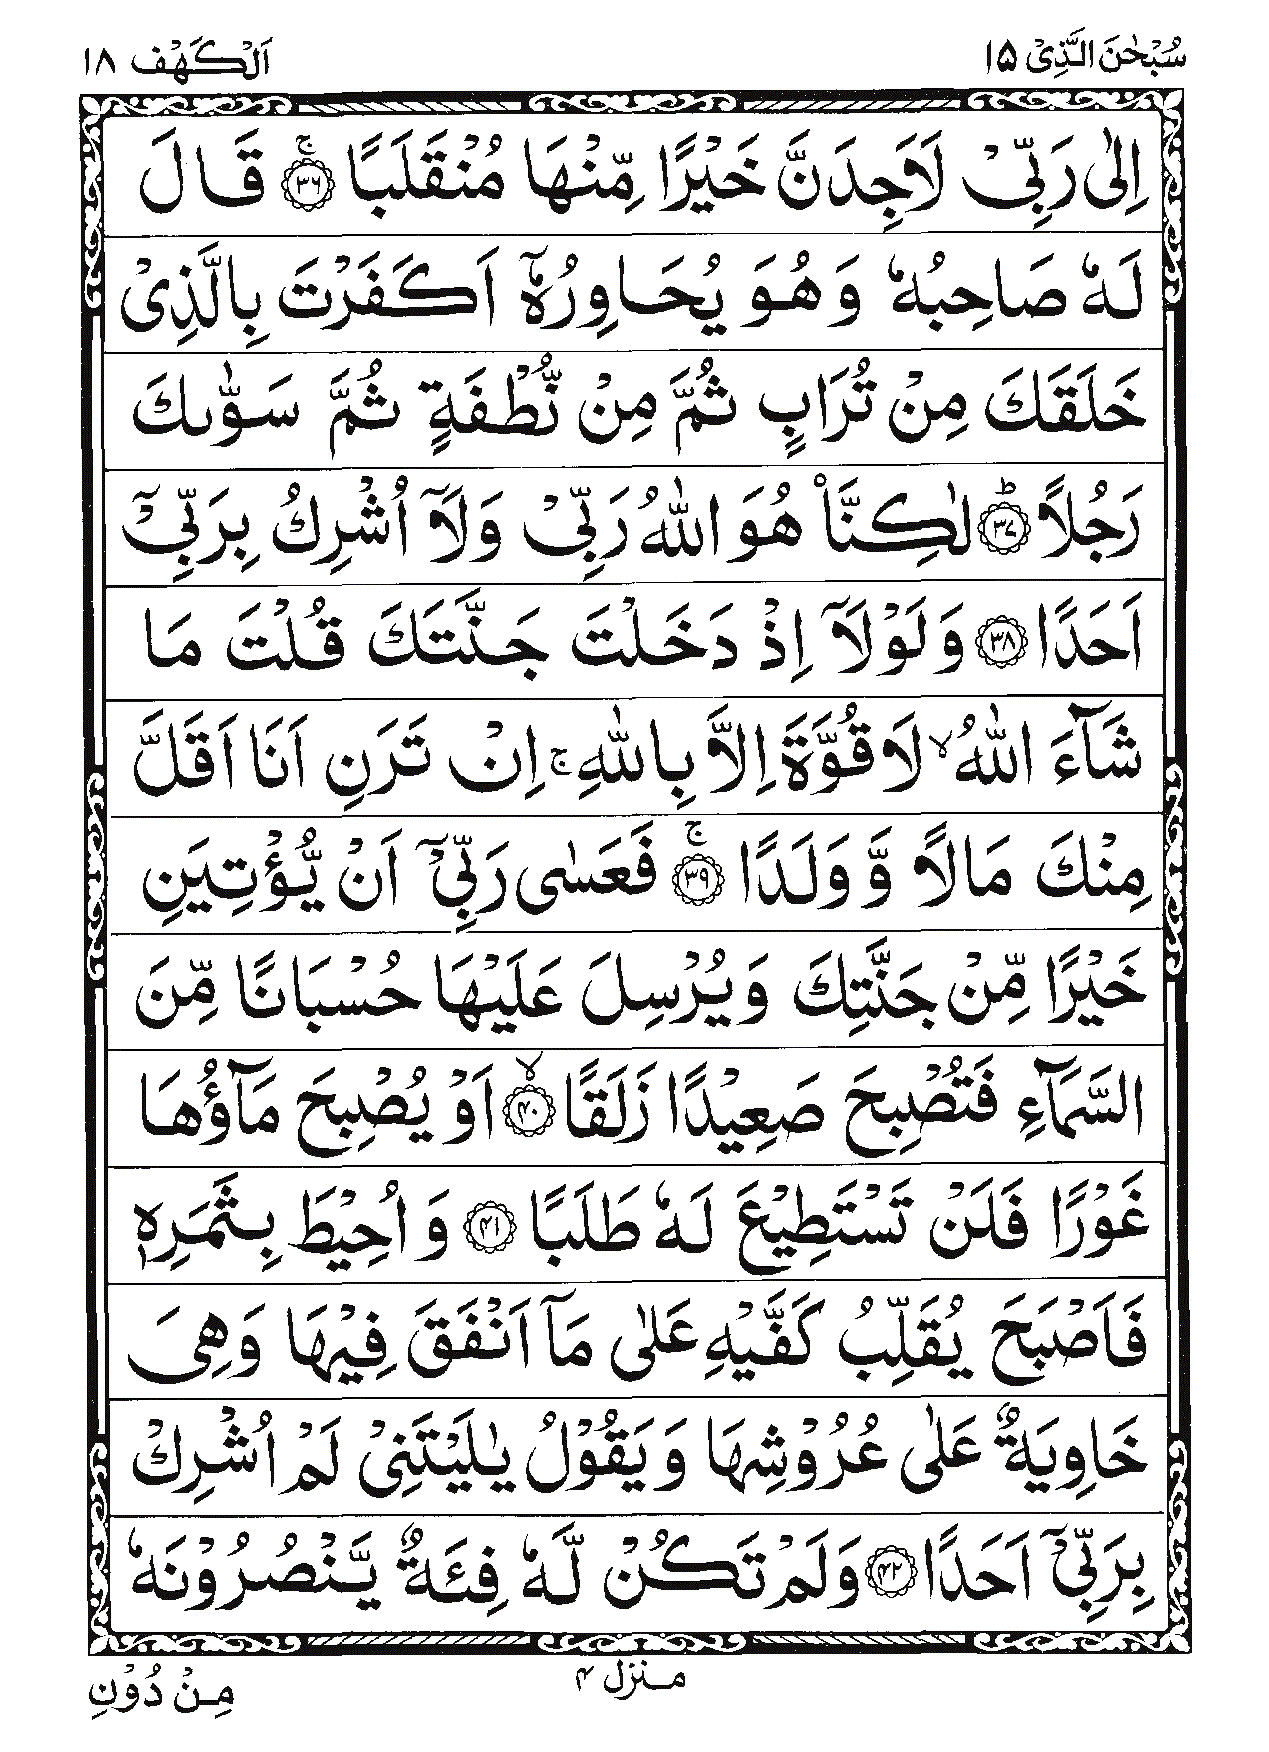 سُبْحٰنَ الَّذِیْۤ ۱۵
اَلْكَهْف ۱۸
اِلٰی رَبِّیْ لَاَجِدَنَّ خَیْرًا مِّنْهَا مُنْقَلَبًا ۚ﴿۳۶﴾ قَالَ
لَهٗ صَاحِبُهٗ وَ هُوَ یُحَاوِرُهٗۤ اَكَفَرْتَ بِالَّذِیْ
خَلَقَكَ مِنْ تُرَابٍ ثُمَّ مِنْ نُّطْفَةٍ ثُمَّ سَوّٰىكَ
رَجُلًا ؕ﴿۳۷﴾ لٰكِنَّا۠ هُوَ اللّٰهُ رَبِّیْ وَلَاۤ اُشْرِكُ بِرَبِّیْۤ
اَحَدًا ﴿۳۸﴾ وَ لَوْلَاۤ اِذْ دَخَلْتَ جَنَّتَكَ قُلْتَ مَا
شَآءَ اللّٰهُ ۙ لَا قُوَّةَ اِلَّا بِاللّٰهِ ۚ اِنْ تَرَنِ اَنَا اَقَلَّ
مِنْكَ مَالًا وَّ وَلَدًا ۚ﴿۳۹﴾ فَعَسٰی رَبِّیْۤ اَنْ یُّؤْتِیَنِ
خَیْرًا مِّنْ جَنَّتِكَ وَ یُرْسِلَ عَلَیْهَا حُسْبَانًا مِّنَ
السَّمَآءِ فَتُصْبِحَ صَعِیْدًا زَلَقًا ۙ﴿۴۰﴾ اَوْ یُصْبِحَ مَآؤُهَا
غَوْرًا فَلَنْ تَسْتَطِیْعَ لَهٗ طَلَبًا ﴿۴۱﴾ وَ اُحِیْطَ بِثَمَرِهٖ
فَاَصْبَحَ یُقَلِّبُ كَفَّیْهِ عَلٰی مَاۤ اَنْفَقَ فِیْهَا وَهِیَ
خَاوِیَةٌ عَلٰی عُرُوْشِهَا وَ یَقُوْلُ یٰلَیْتَنِیْ لَمْ اُشْرِكْ
بِرَبِّیْۤ اَحَدًا ﴿۴۲﴾ وَلَمْ تَكُنْ لَّهٗ فِئَةٌ یَّنْصُرُوْنَهٗ
منزل ۴
مِنْ دُوْنِ